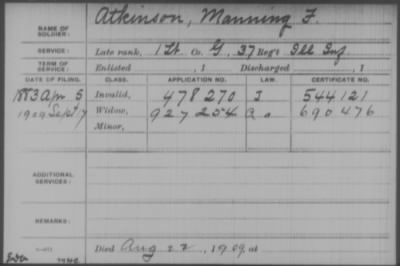 NAME OF SOLDIER: Atkinson, Manning F.
SERVICE: Late rank, 1 Lt. Co. G, 37 Reg't Ill Inf.
TERM OF SERVICE: Enlisted , 1 Discharged , 1
DATE OF FILING. CLASS. APPLICATION NO. LAW. CERTIFICATE NO.
1883 Apr 5 Invalid, 478 270 544 121
1909 Sept 7 Widow, 927 254 690 476
Minor,
ADDITIONAL SERVICES:
REMARKS:
Died Aug 22, 1909, at